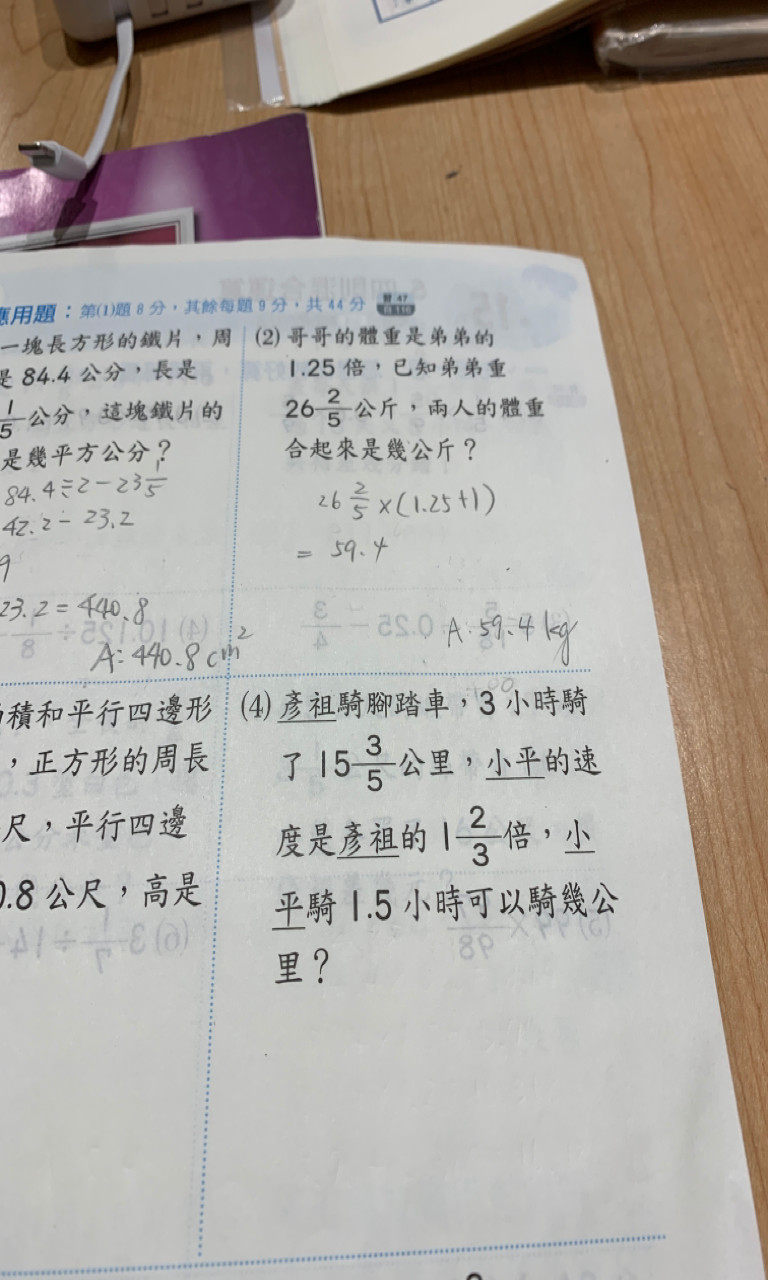 應用題：第(1)題8分，其餘每題9分，共44分
一塊長方形的鐵片，周
是84.4公分，長是
1/5公分，這塊鐵片的
是幾平方公分？
84.4÷2－23 1/5
42.2－23.2
9
23.2＝440.8
A：440.8cm²
(2)哥哥的體重是弟弟的
1.25倍，已知弟弟重
26 2/5公斤，兩人的體重
合起來是幾公斤？
26 2/5×(1.25+1)
＝59.4
A.59.4kg
積和平行四邊形
，正方形的周長
尺，平行四邊
0.8公尺，高是
(4)彥祖騎腳踏車，3小時騎
了15 3/5公里，小平的速
度是彥祖的1 2/3倍，小
平騎1.5小時可以騎幾公
里？